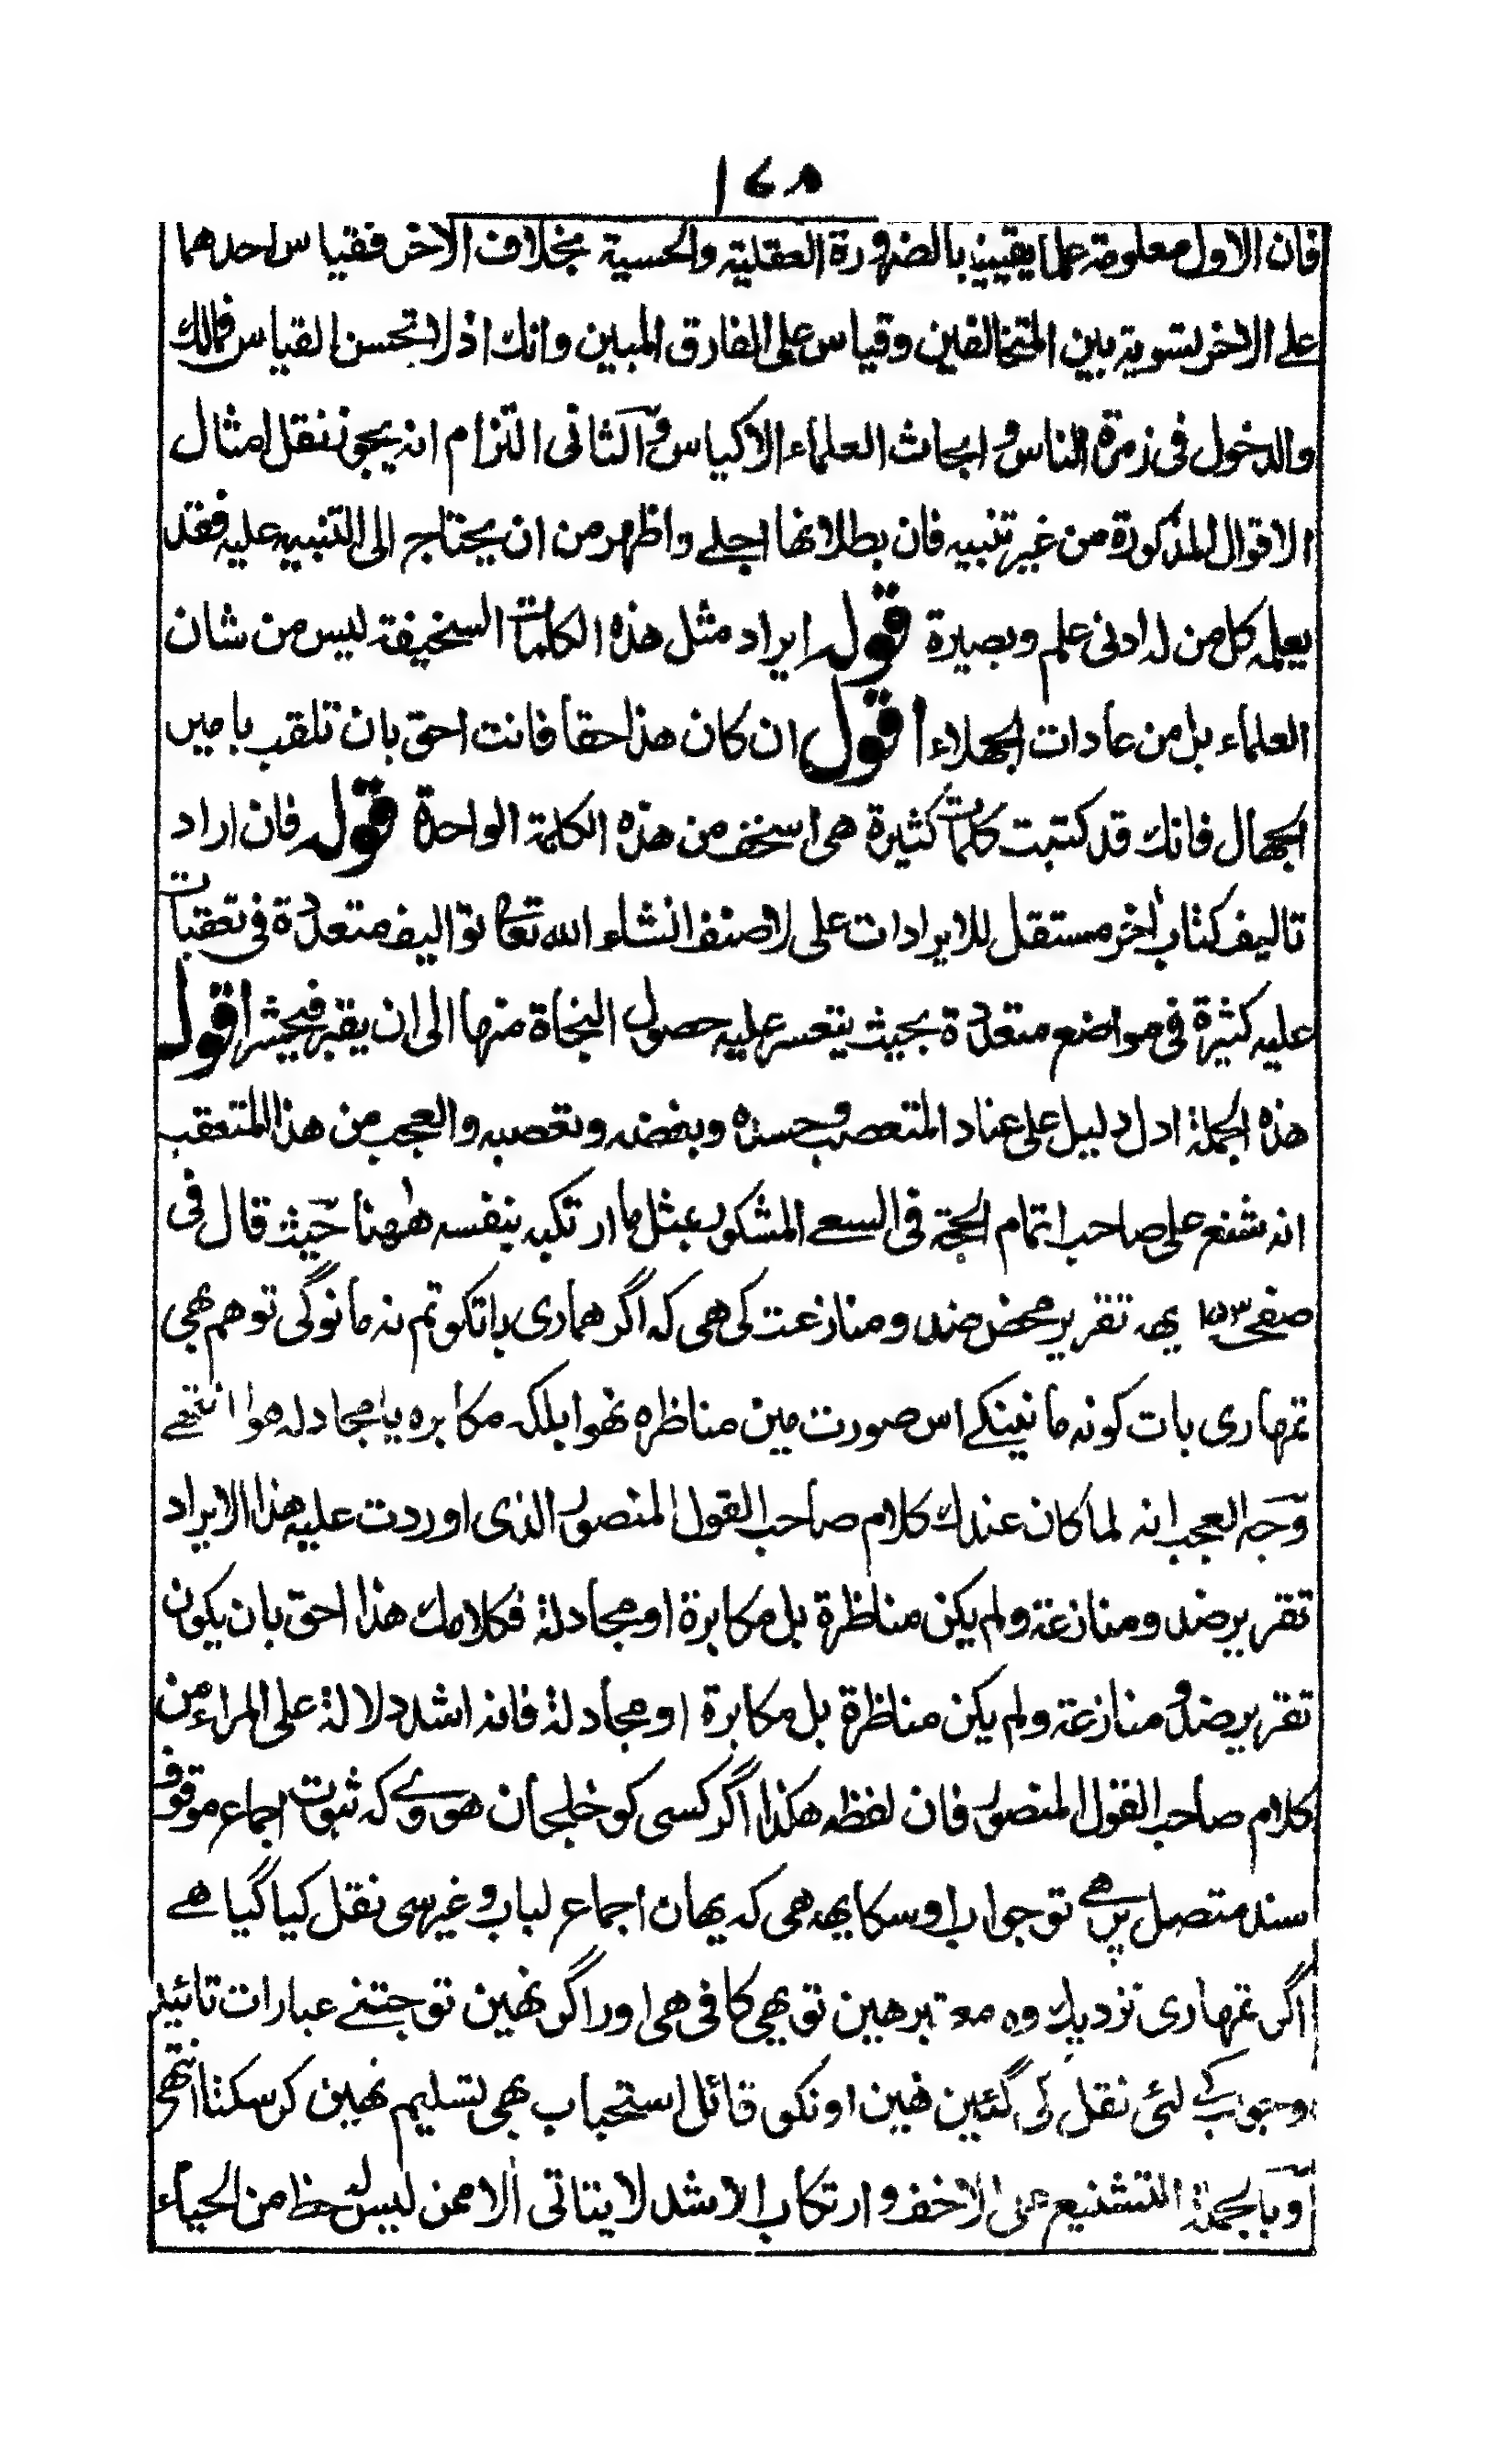 ١٧٥
فان الاول معلومة علما يقينيا بالضرورة العقلية والحسية بخلاف الاخر فقياس احدهما
على الاخر تسوية بين المتخالفين وقياس على الفارق المبين وانك اذ لا تحسن القياس فمالك
والدخول فى زمرة الناس و ابحاث العلماء الاكياس و الثانى التزام انه يجوز نقل امثال
الاقوال المذكورة من غير تنبيه فان بطلانها اجلے واظهر من ان يحتاج الى التنبيه عليه فقد
يعلمه كل من له ادنى علم وبصيرة قوله ايراد مثل هذه الكلمات السخيفة ليس من شان
العلماء بل من عادات الجهلاء اقول ان كان هذا حقا فانت احق بان تلقب بامير
الجهال فانك قد كتبت كلمات كثيرة هى اسخف من هذه الكلمة الواحدة قوله فان اراد
تاليف كتاب اخر مستقل للايرادات على لاصنف انشاء الله تعالى تواليف متعددة فى تعقبات
عليه كثيرة فى مواضع متعددة بحيث يتعسر عليه حصول النجاة منها الى ان يقبر فيحشر اقول
هذه الجملة ادل دليل على عناد المتعصب و حسده وبغضه وتعصبه والعجب من هذا المتعقب
انه شنع على صاحب اتمام الحجة فى السعے المشكور بمثل ما ارتكبه بنفسه ههنا حيث قال فى
صفحہ ١٥٣ يهہ تقرير محض ضد و منازعت كى هى كہ اگر همارى باتكو تم نہ مانوگى تو هم بهى
تمهارى بات كو نہ مانينگے اس صورت مين مناظرہ نهوا بلكہ مكابرہ يا مجادلہ هوا انتهے
وجه العجب انه لما كان عندك كلام صاحب القول المنصور الذى اوردت عليه هذا الايراد
تقرير ضد ومنازعة ولم يكن مناظرة بل مكابرة او مجادلة فكلامك هذا احق بان يكون
تقرير ضد و منازعة ولم يكن مناظرة بل مكابرة او مجادلة فانه اشد دلالة على المراء من
كلام صاحب القول المنصور فان لفظه هكذا اگر كسى كو خلجان هووے كہ ثبوت اجماع موقوف
سند متصل پر هے تو جواب اوسكا يهہ هى كہ يهان اجماع لباب وغيرہ سى نقل كيا گيا هے
اگر تمهارى نزديك وہ معتبر هين تو بهى كافى هى اور اگر نهين تو جتنے عبارات تائيد
وجوب كے لئى نقل كى گئين هين اونكو قائل استحباب بهى تسليم نهين كر سكتا انتهى
وبالجملة التشنيع على الاخف و ارتكاب الاشد لا يتاتى الا ممن ليس له حظ من الحياء